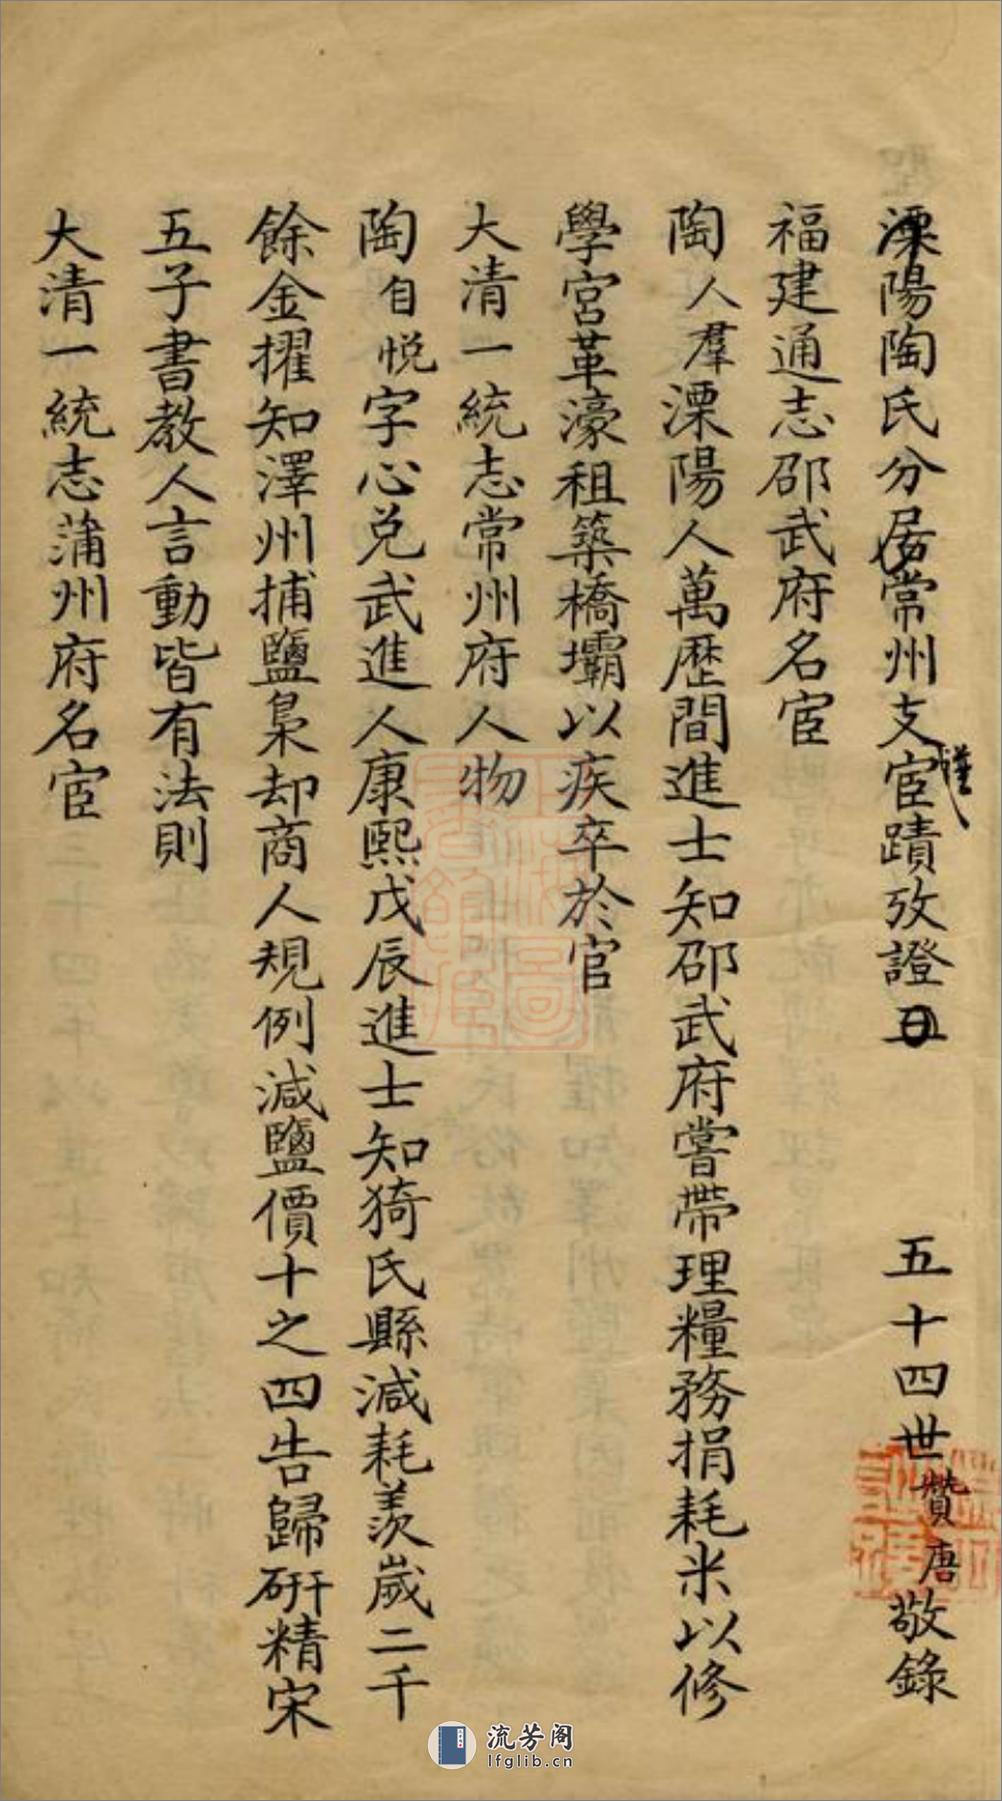 溧陽陶氏分居常州支宦蹟攷證 五十四世贊唐敬錄
謹
福建通志邵武府名宦
陶人羣溧陽人萬歷間進士知邵武府嘗帶理糧務捐耗米以修
學宮革濠租築橋壩以疾卒於官
大清一統志常州府人物
陶自悅字心兌武進人康熙戊辰進士知猗氏縣減耗羨歲二千
餘金擢知澤州捕鹽梟却商人規例減鹽價十之四告歸研精宋
五子書教人言動皆有法則
大清一統志蒲州府名宦
流芳阁
lfglib.cn